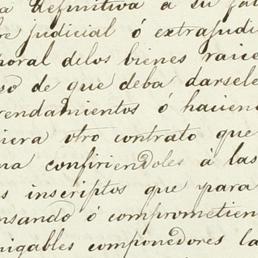 a definitiva a su fa
re judicial ó extrajudi
poral delos bienes raice
so de que deba darsele
rendamientos ó hacien
iera otro contrato que
na confiriendoles á las
s inscriptos que para
nsando ó comprometien
igables componedores la